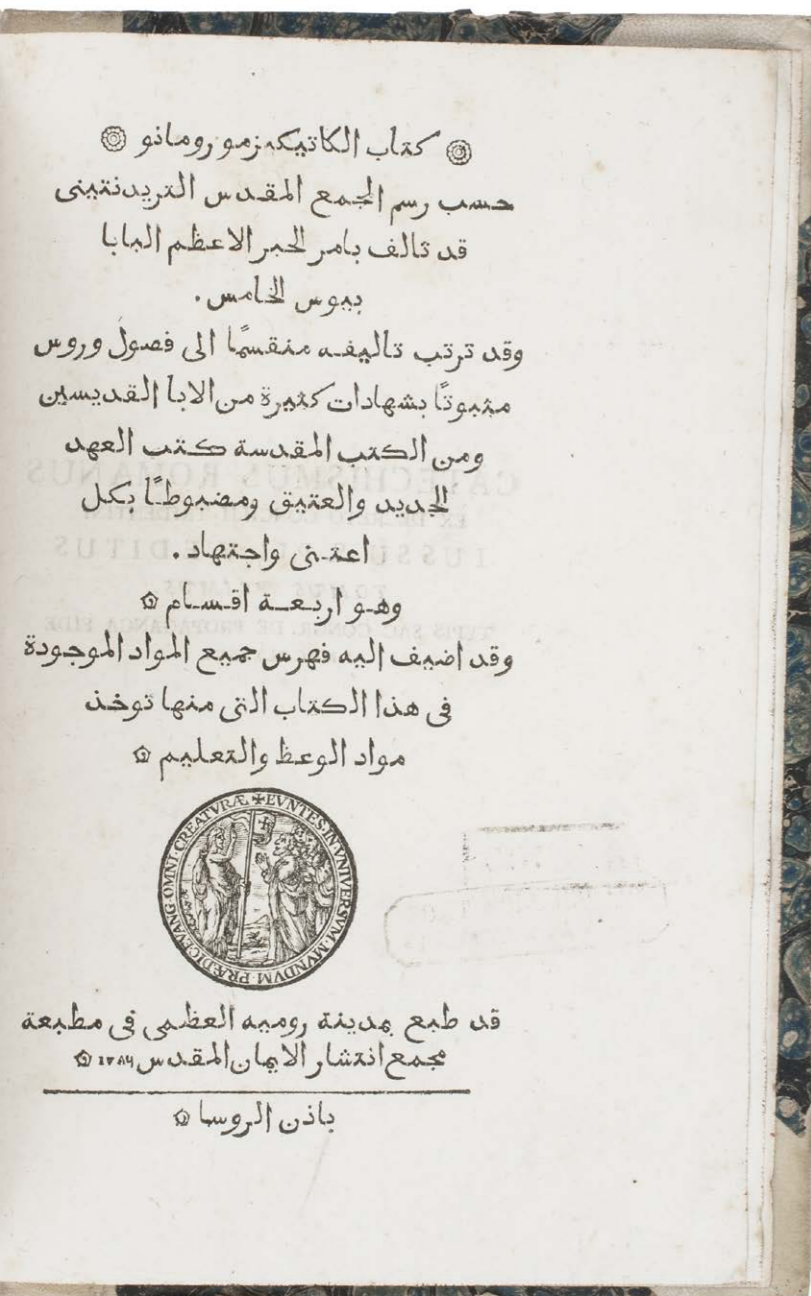 كتاب الكاتيكيزمو رومانو
حسب رسم المجمع المقدس التريدنتيني
قد تالف بامر الحبر الاعظم البابا
بيوس الخامس.
وقد ترتب تاليفه منقسمًا الى فصول وروس
مثبوتًا بشهادات كثيرة من الابا القديسين
ومن الكتب المقدسة كتب العهد
الجديد والعتيق ومضبوطًا بكل
اعتنى واجتهاد.
وهو اربعة اقسام
وقد اضيف اليه فهرس جميع المواد الموجودة
فى هذا الكتاب التى منها توخذ
مواد الوعظ والتعليم
✠EVNTES·IN·VNIVERSVM·MVNDVM·PRÆDIC·EVANG·OMNI·CREATVRÆ
قد طبع بمدينة روميه العظمى فى مطبعة
مجمع انتشار الايمان المقدس ١٧٨٦
باذن الروسا